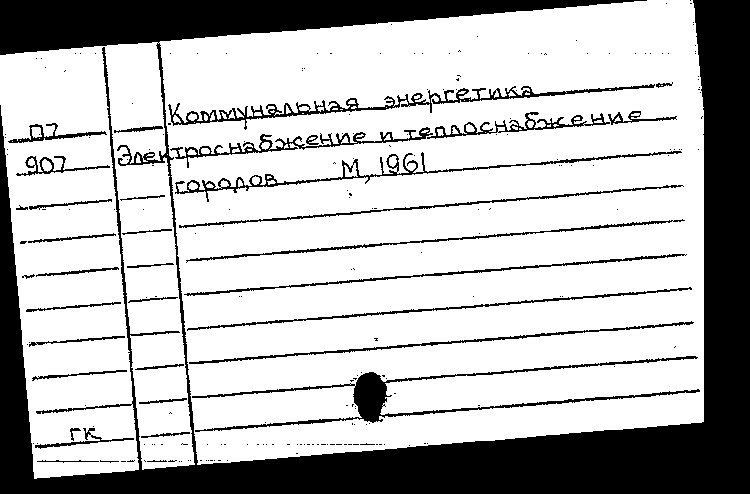 Коммунальная энергетика
П7
907 Электроснабжение и теплоснабжение
городов М, 1961
гк